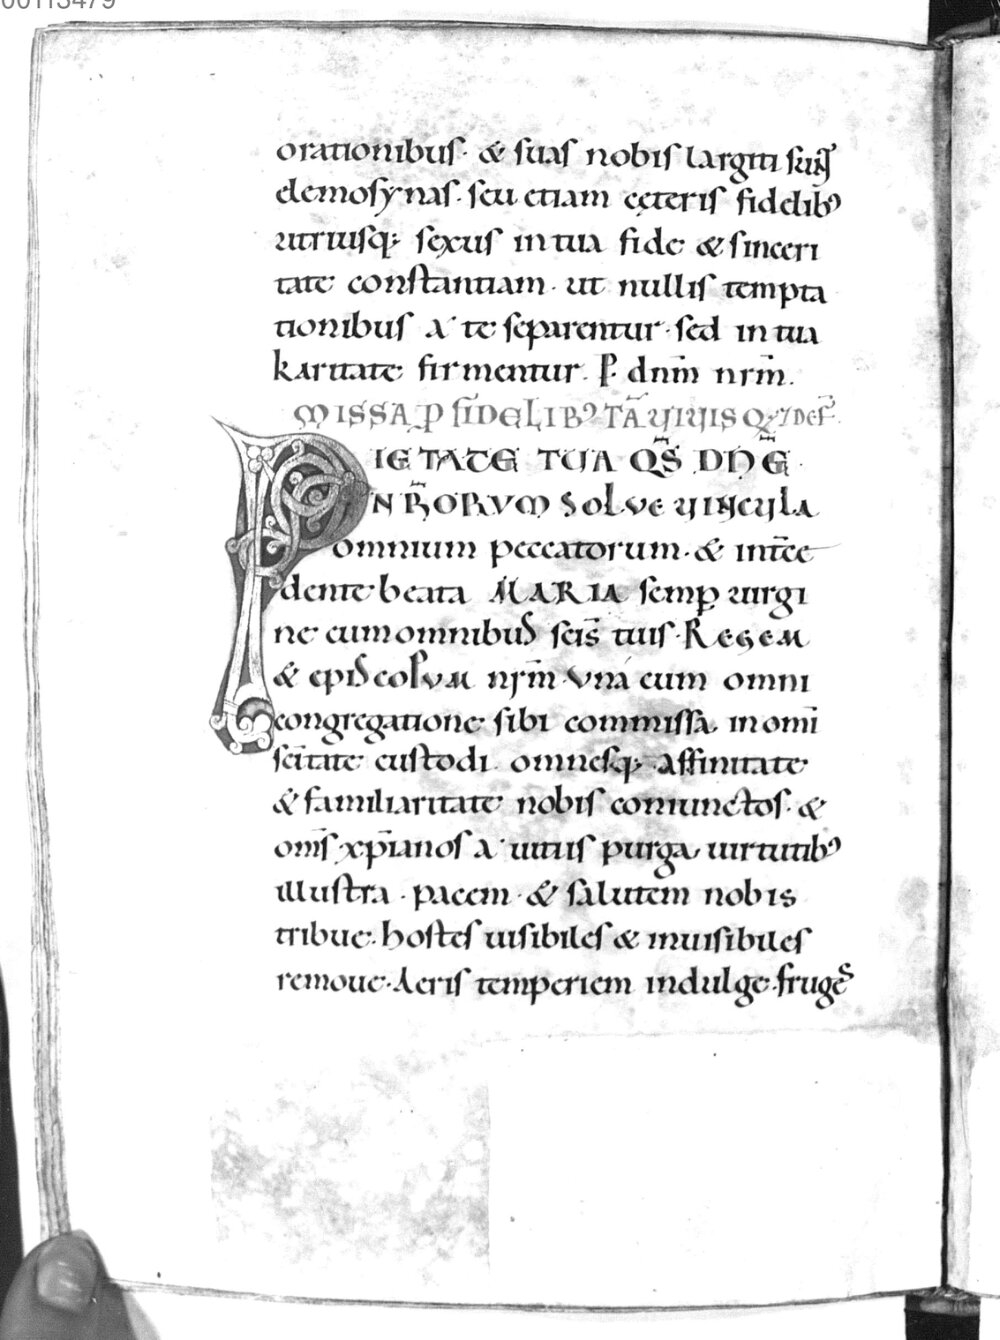 00113479
orationibus· & suas nobis largiti sunt
elemosynas· seu etiam ceteris fidelibꝰ
utriusq; sexus in tua fide & sinceri
tate constantiam· ut nullis tempta
tionibus a te separentur· sed in tua
karitate firmentur. P. dnm̄ nrm̄.
MISSA P FIDELIBꝰ TĀ VIVIS Q̄ 7 DEF̄.
PIETATE TUA QS̄ DN̄E·
NR̄ORVM SOLVE VINCVLA
omnium peccatorum· & int̄ce
dente beata MARIA semp uirgi
ne cum omnibus sc̄is tuis· REGEM
& episcopum nrm̄ una cum omni
congregatione sibi commissa in omī
sc̄itate custodi omnesq; affinitate
& familiaritate nobis coniunctos· &
om̄s xp̄ianos a uitiis purga uirtutibꝰ
illustra· pacem· & salutem nobis
tribue· hostes uisibiles & inuisibiles
remoue· Aeris temperiem indulge· fruges